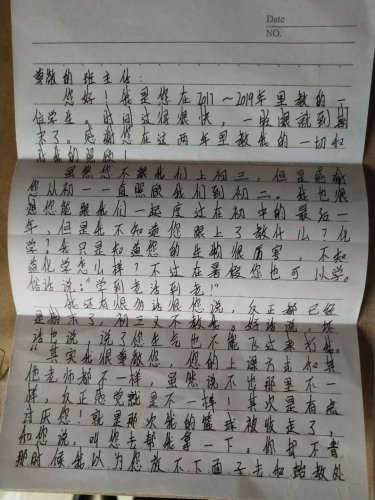 Date
NO.
尊敬的班主任:
您好!我是您在2017~2019年里教的一
位学生。时间过得很快,一眨眼就到期
末了。感谢您在这两年里教我的一切和
对我的照顾!
虽然您不跟我们上初三,但是感谢
您从初一一直照顾我们到初二。我也很
想您能跟我们一起度过在初中的最后一
年,但是我不知道您跟上了教什么?化
学?我只是知道您的生物很厉害,不知
道化学怎么样?不过在暑假您也可以学。
俗话说:"学到老活到老!"
我还有很多话很想您说,反正都已经
是期末了,初三又不教我。好话说,坏
话也说,说了您生气也不能飞过来打我。
"其实我很尊敬您,您的上课方式和其
他老师都不一样,虽然说不出那里不一
样,反正感觉就是不一样!其次是有点
讨厌您!就是那次我的篮球被收走了,
和您说,叫您去帮我拿一下,你却不肯
那时候我以为您放不下面子去和
教处